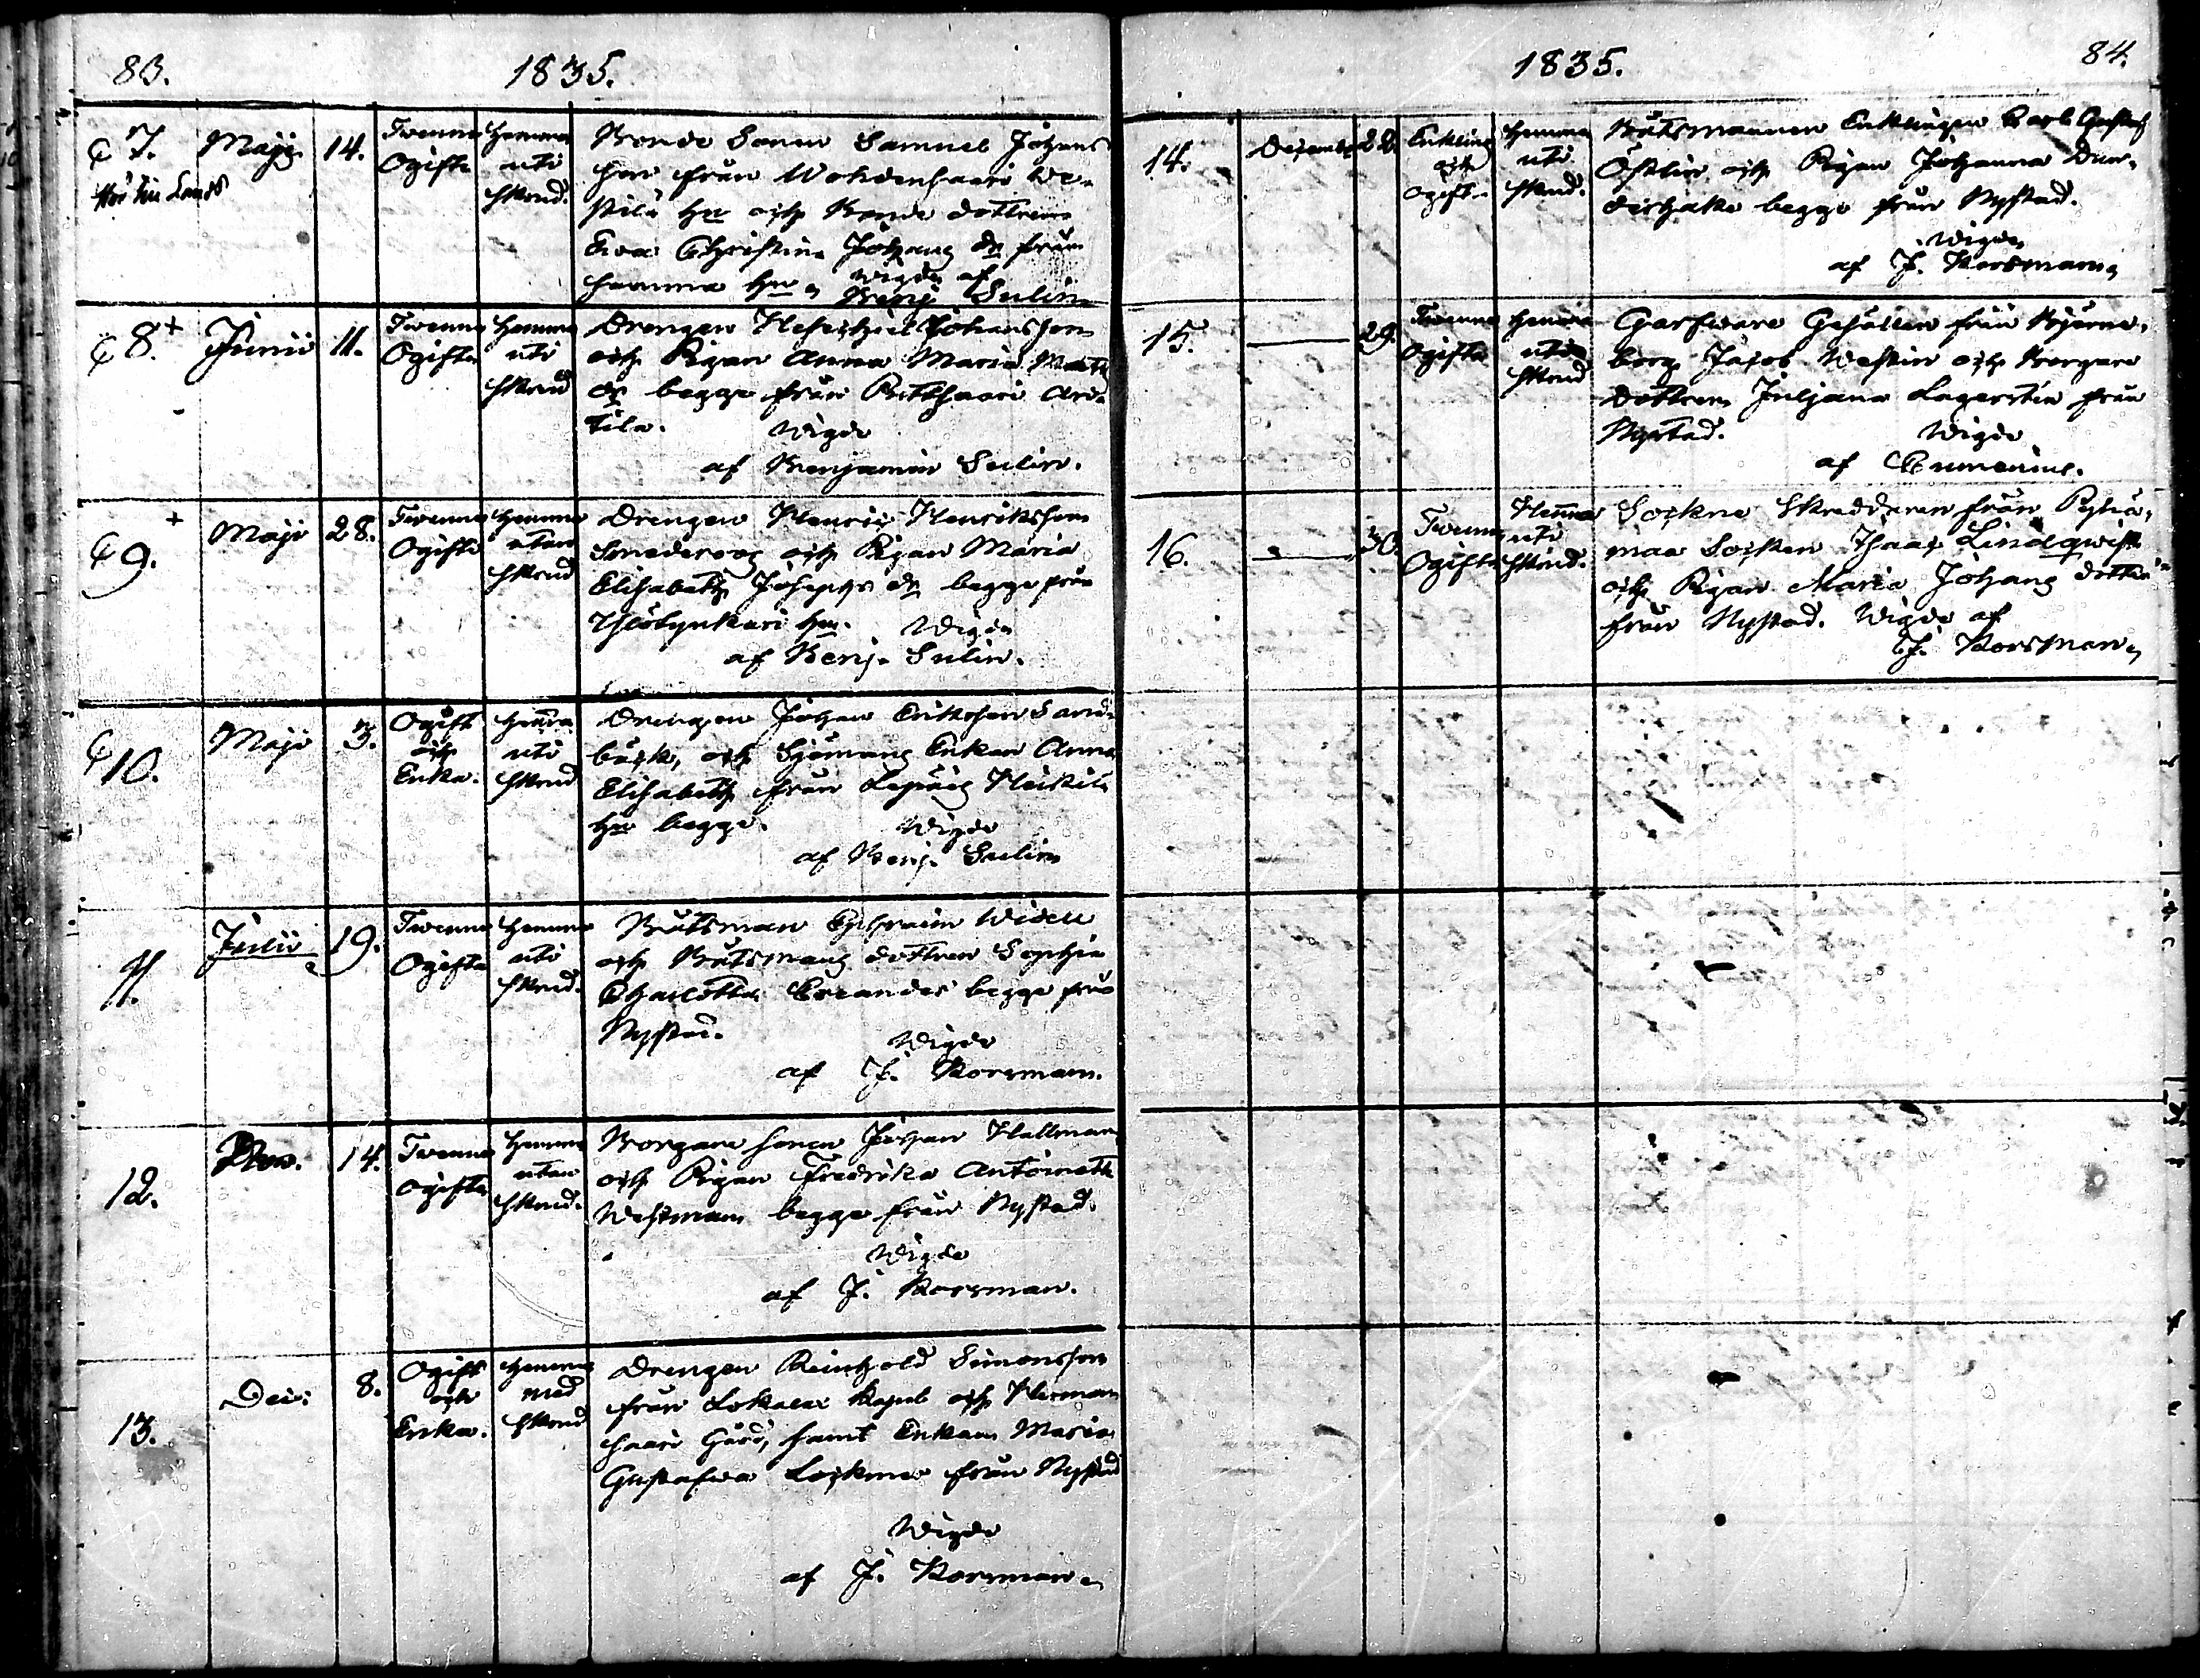 83.
1835.
7. Maji 14. Twenne Ogifte Hemma uti Stånd.
Hör till Lands
Bonde Sonen Samuel Johans
son från
Hn och Bonde dottren
Eva Christina Johans dr från
samma Hn Wigde af
Benj Sulin
8. + Junii 11. Twenne Ogifte Hemma uti Stånd
Drengen Johansson
och Pigan Anna Maria Matts
dr begge från
tila. Wigde
af Benjamin Sulin.
9. + Maji 28. Twenne Ogifte Hemma utan Stånd
Drengen Henric Henriksson
och Pigan Maria
Elisabeth Josephs dr begge från
Hn. Wigde
af Benj. Sulin.
10. Maji 3. Ogift och Enka. Hemma uti Stånd
Drengen Johan Eriksson Sand-
bäck, och Sjömans Enkan Anna
Elisabeth från Lepäis Heikilä
Hn begge. Wigde
af Benj. Sulin
11. Julii 19. Twenne Ogifte Hemma uti Stånd.
Båtsman Ephraim Widell
och Båtsmans dottren Sophia
Charlotta begge från
Nystad. Wigde
af J. Korsman.
12. Nov. 14. Twenne ogifte Hemma utan Stånd.
Borgare Sonen Johan Hallman
och Pigan Fredrika Antoinette
Westman begge från Nystad.
Wigde
af J. Korsman.
13. Dec: 8. Ogift och Enka. Hemma med Stånd
Drengen Reinhold Simonsson
från Lokalax Kapel och Herman
saari Gård, samt Enkan Maria
Gustafva från Nystad
Wigde
af J. Korsman
1835.
84.
14. December 22 Enkling och ogift Hemma uti Stånd.
Båtsmannen Enklingen Carl Gustaf
Östlin och Pigan Johanna Dun-
derhake begge från Nystad.
Wigde
af J. Korsman
15. 29. Twenne Ogifte Hemma utan Stånd
Garfvare Gesällen från Björne-
borg Jacob Westin och Borgare
Dottren Juljana Lagerstén från
Nystad. Wigde
af Cumenius.
16. 30 Twenne Ogifte Hemma uti Stånd.
Sockne Skräddaren från Pyhä-
maa Socken Isaac Lindqwist
och Pigan Maria Johans dotter
från Nystad. Wigde af
J. Korsman